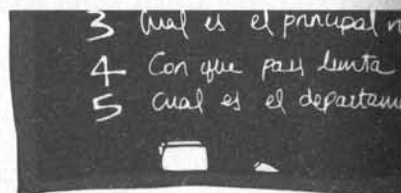 3 Cual es el principal
4 Con que pais limita
5 Cual es el departame